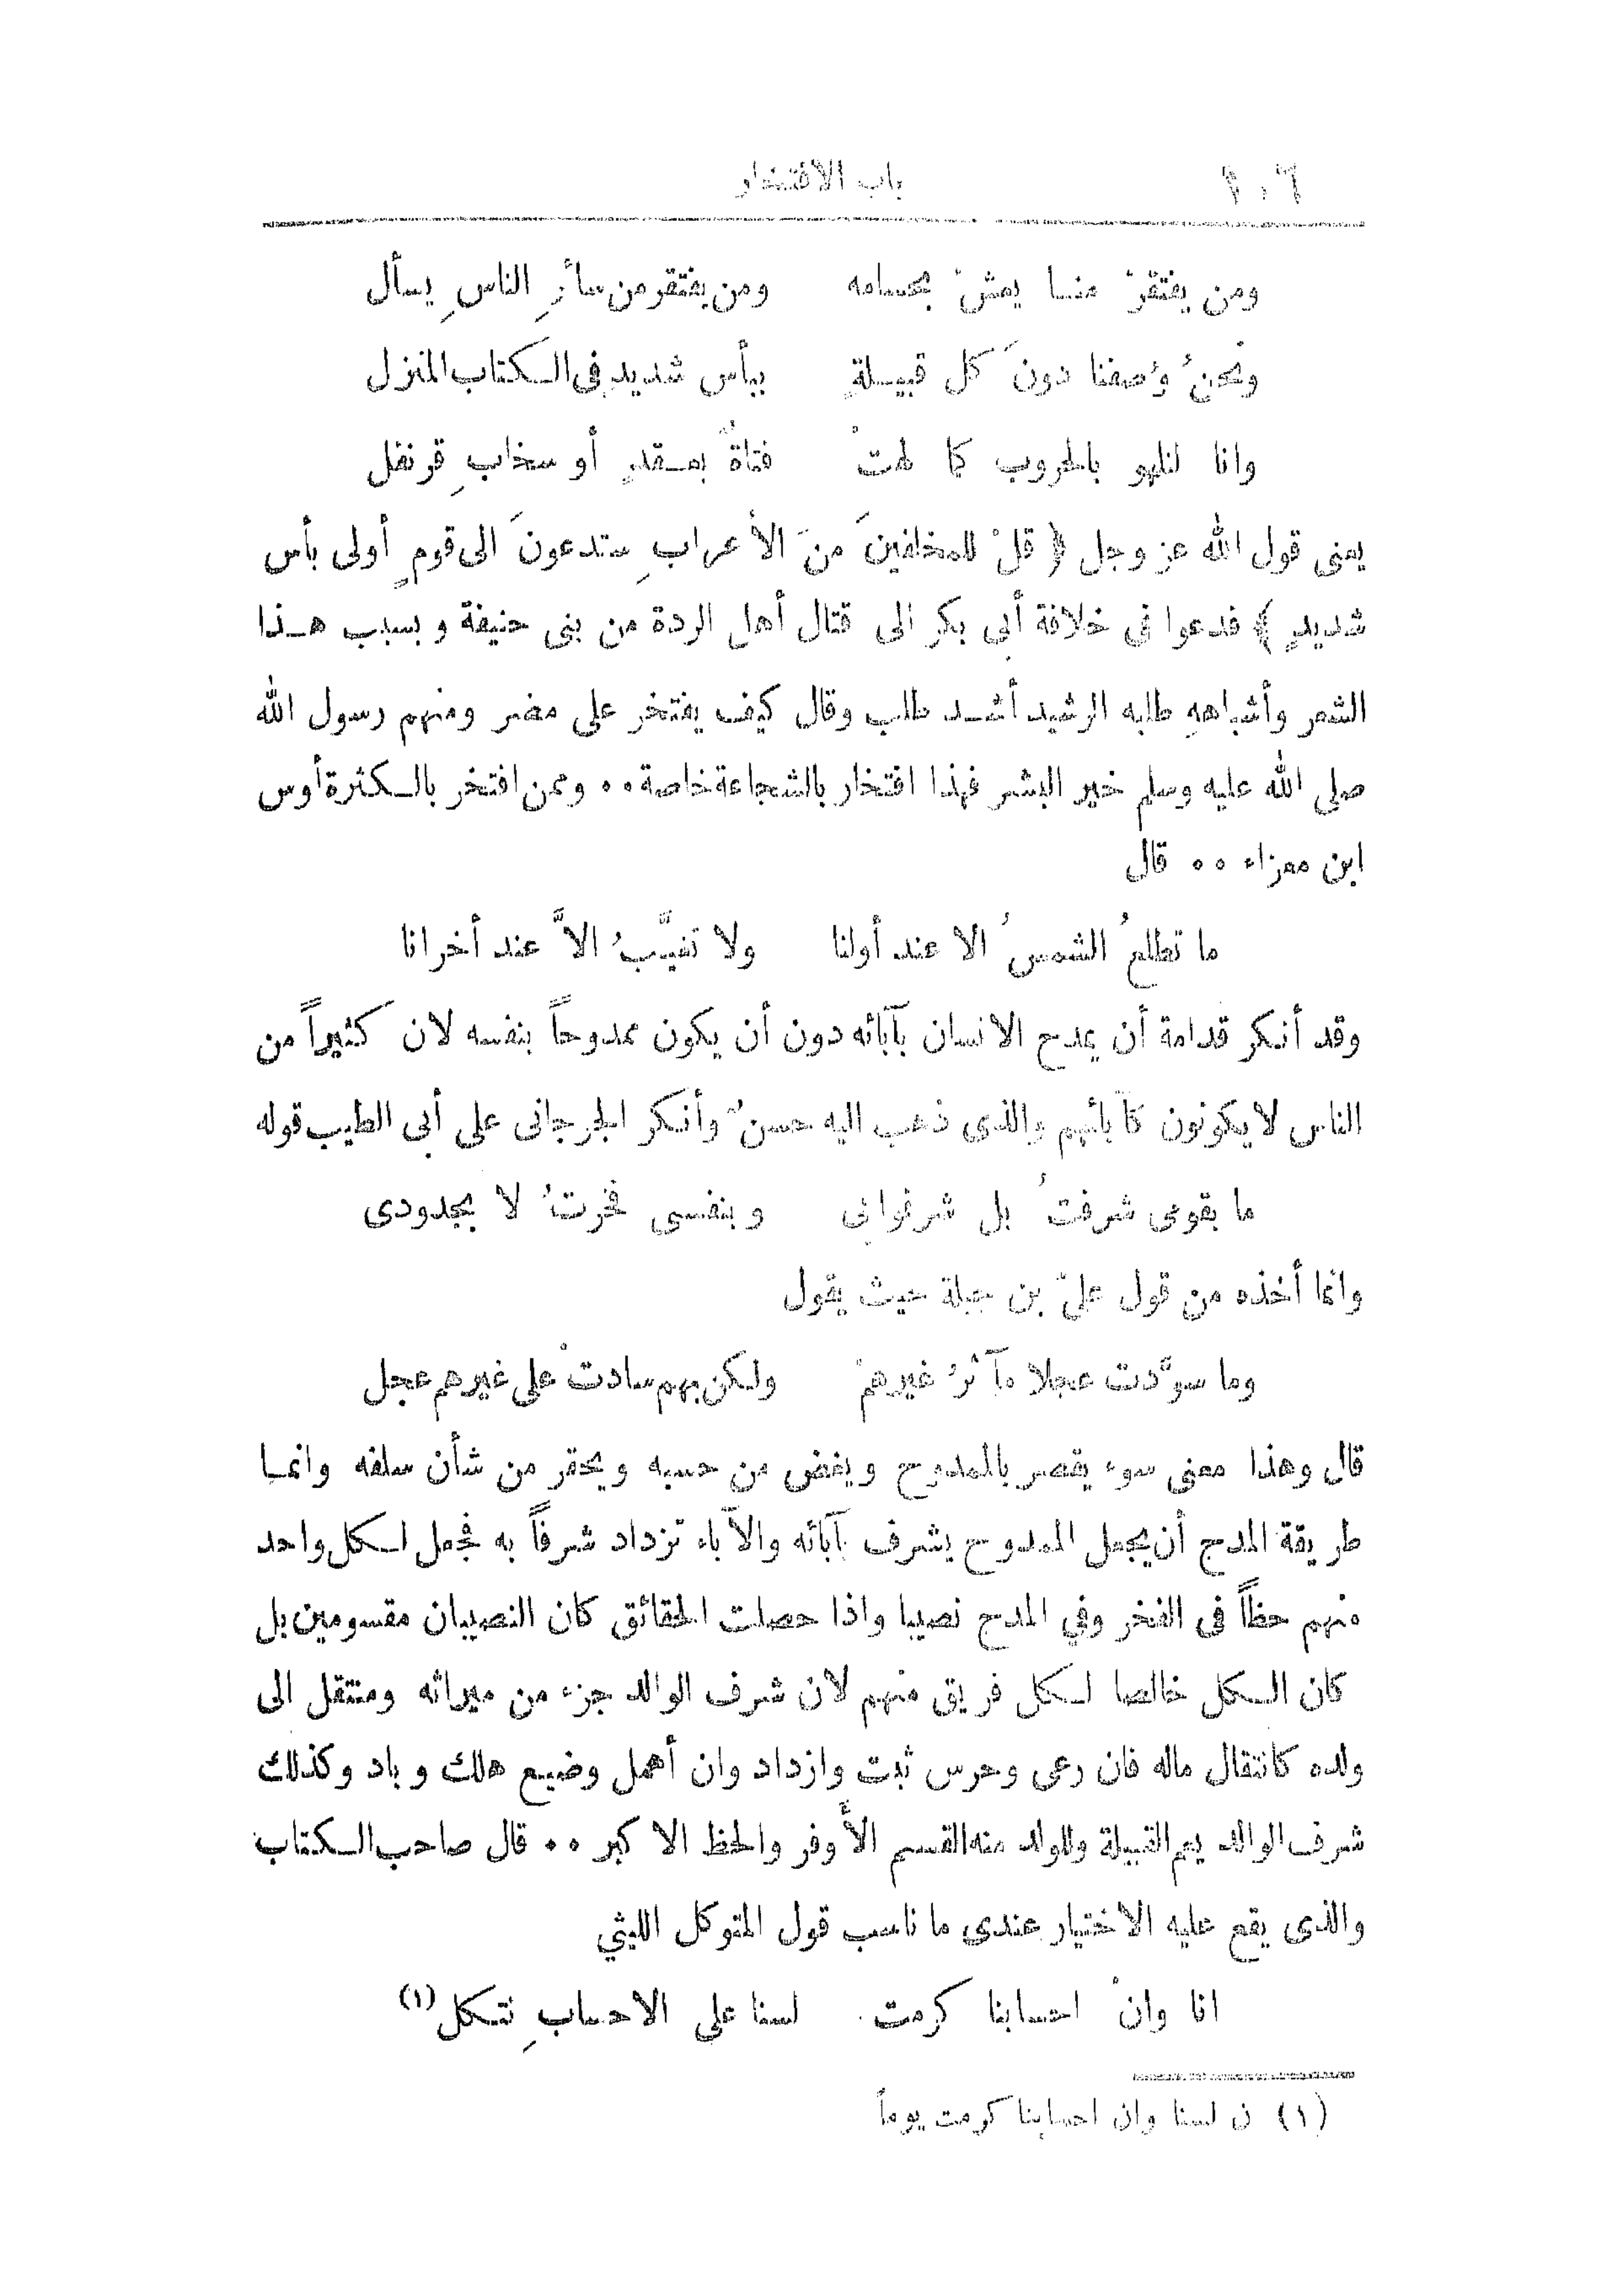 ١٠٦ باب الافتخار
ومن يفتقرْ منا يعشْ بحسامه ومن يفتقر من سائرِ الناسِ يسأل
ونحنُ وُصفنا دونَ كل قبيلةٍ ببأس شديدٍ فى الكتاب المنزل
وانا لنلهو بالحروب كما لهتْ فتاةٌ بعقدٍ أو سخابِ قرنفل
يعنى قول الله عز وجل ﴿ قلْ للمخلفينَ منَ الأعرابِ ستدعونَ الى قومٍ أولى بأس
شديدٍ ﴾ فدعوا فى خلافة أبى بكر الى قتال أهل الردة من بنى حنيفة وبسبب هذا
الشعر وأشباهه طلبه الرشيد أشد طلب وقال كيف يفتخر على مضر ومنهم رسول الله
صلى الله عليه وسلم خير البشر فهذا افتخار بالشجاعة خاصة ٠٠ وممن افتخر بالكثرة أوس
ابن مغراء ٠٠ قال
ما تطلعُ الشمسُ الا عند أولنا ولا تغيَّبُ الاَّ عند أخرانا
وقد أنكر قدامة أن يمدح الانسان بآبائه دون أن يكون ممدوحاً بنفسه لان كثيراً من
الناس لا يكونون كآبائهم والذى ذهب اليه حسنٌ وأنكر الجرجانى على أبى الطيب قوله
ما بقومى شرفتُ بل شرفوا بى وبنفسى فخرتُ لا بجدودى
وانما أخذه من قول علىّ بن جبلة حيث يقول
وما سوَّدت عجلا مآثرُ غيرهمْ ولكن بهم سادتْ على غيرهم عجل
قال وهذا معنى سوء يقصر بالممدوح ويغض من حسبه ويحقر من شأن سلفه وانما
طريقة المدح أن يجعل الممدوح يشرف بآبائه والآباء تزداد شرفاً به فجعل لكل واحد
منهم حظاً فى الفخر وفي المدح نصيبا واذا حصلت الحقائق كان النصيبان مقسومين بل
كان الكل خالصا لكل فريق منهم لان شرف الوالد جزء من ميراثه ومنتقل الى
ولده كانتقال ماله فان رعى وحرس ثبت وازداد وان أهمل وضيع هلك وباد وكذلك
شرف الوالد يعم القبيلة وللولد منه القسم الأوفر والحظ الاكبر ٠٠ قال صاحب الكتاب
والذى يقع عليه الاختيار عندى ما ناسب قول المتوكل الليثي
انا وانْ احسابنا كرمت لسنا على الاحسابِ نتكل (١)
(١) ن لسنا وان احسابنا كرمت يوماً